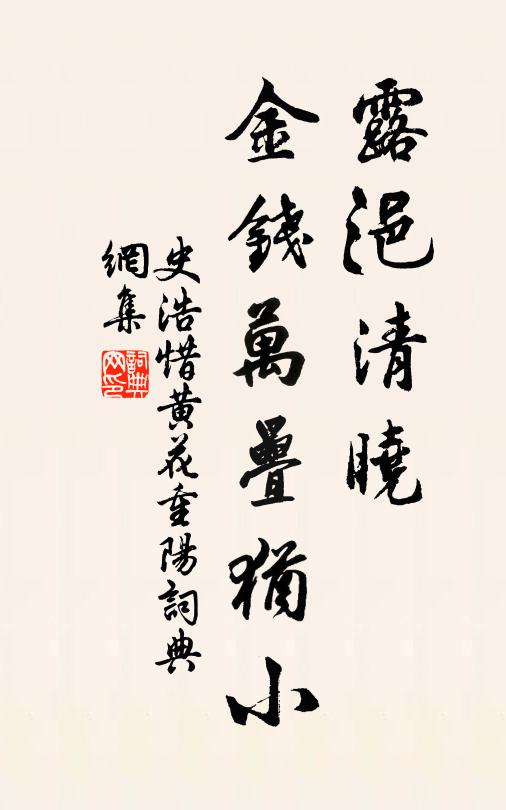 露浥清曉
金錢萬疊猶小
史浩惜黄花重陽詞典
網集
詞典
网印